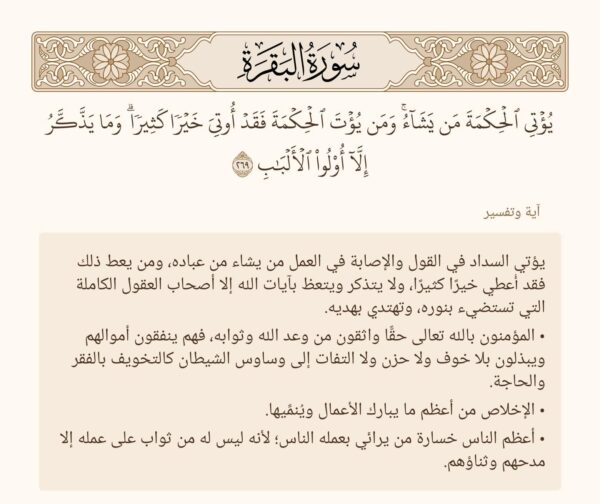 سُورَةُ البَقَرَةِ
يُؤۡتِي ٱلۡحِكۡمَةَ مَن يَشَآءُۚ وَمَن يُؤۡتَ ٱلۡحِكۡمَةَ فَقَدۡ أُوتِيَ خَيۡرٗا كَثِيرٗاۗ وَمَا يَذَّكَّرُ
إِلَّآ أُوْلُواْ ٱلۡأَلۡبَٰبِ ٢٦٩
آية وتفسير
يؤتي السداد في القول والإصابة في العمل من يشاء من عباده، ومن يعط ذلك
فقد أعطي خيرًا كثيرًا، ولا يتذكر ويتعظ بآيات الله إلا أصحاب العقول الكاملة
التي تستضيء بنوره، وتهتدي بهديه.
• المؤمنون بالله تعالى حقًّا واثقون من وعد الله وثوابه، فهم ينفقون أموالهم
ويبذلون بلا خوف ولا حزن ولا التفات إلى وساوس الشيطان كالتخويف بالفقر
والحاجة.
• الإخلاص من أعظم ما يبارك الأعمال ويُنمِّيها.
• أعظم الناس خسارة من يرائي بعمله الناس؛ لأنه ليس له من ثواب على عمله إلا
مدحهم وثناؤهم.